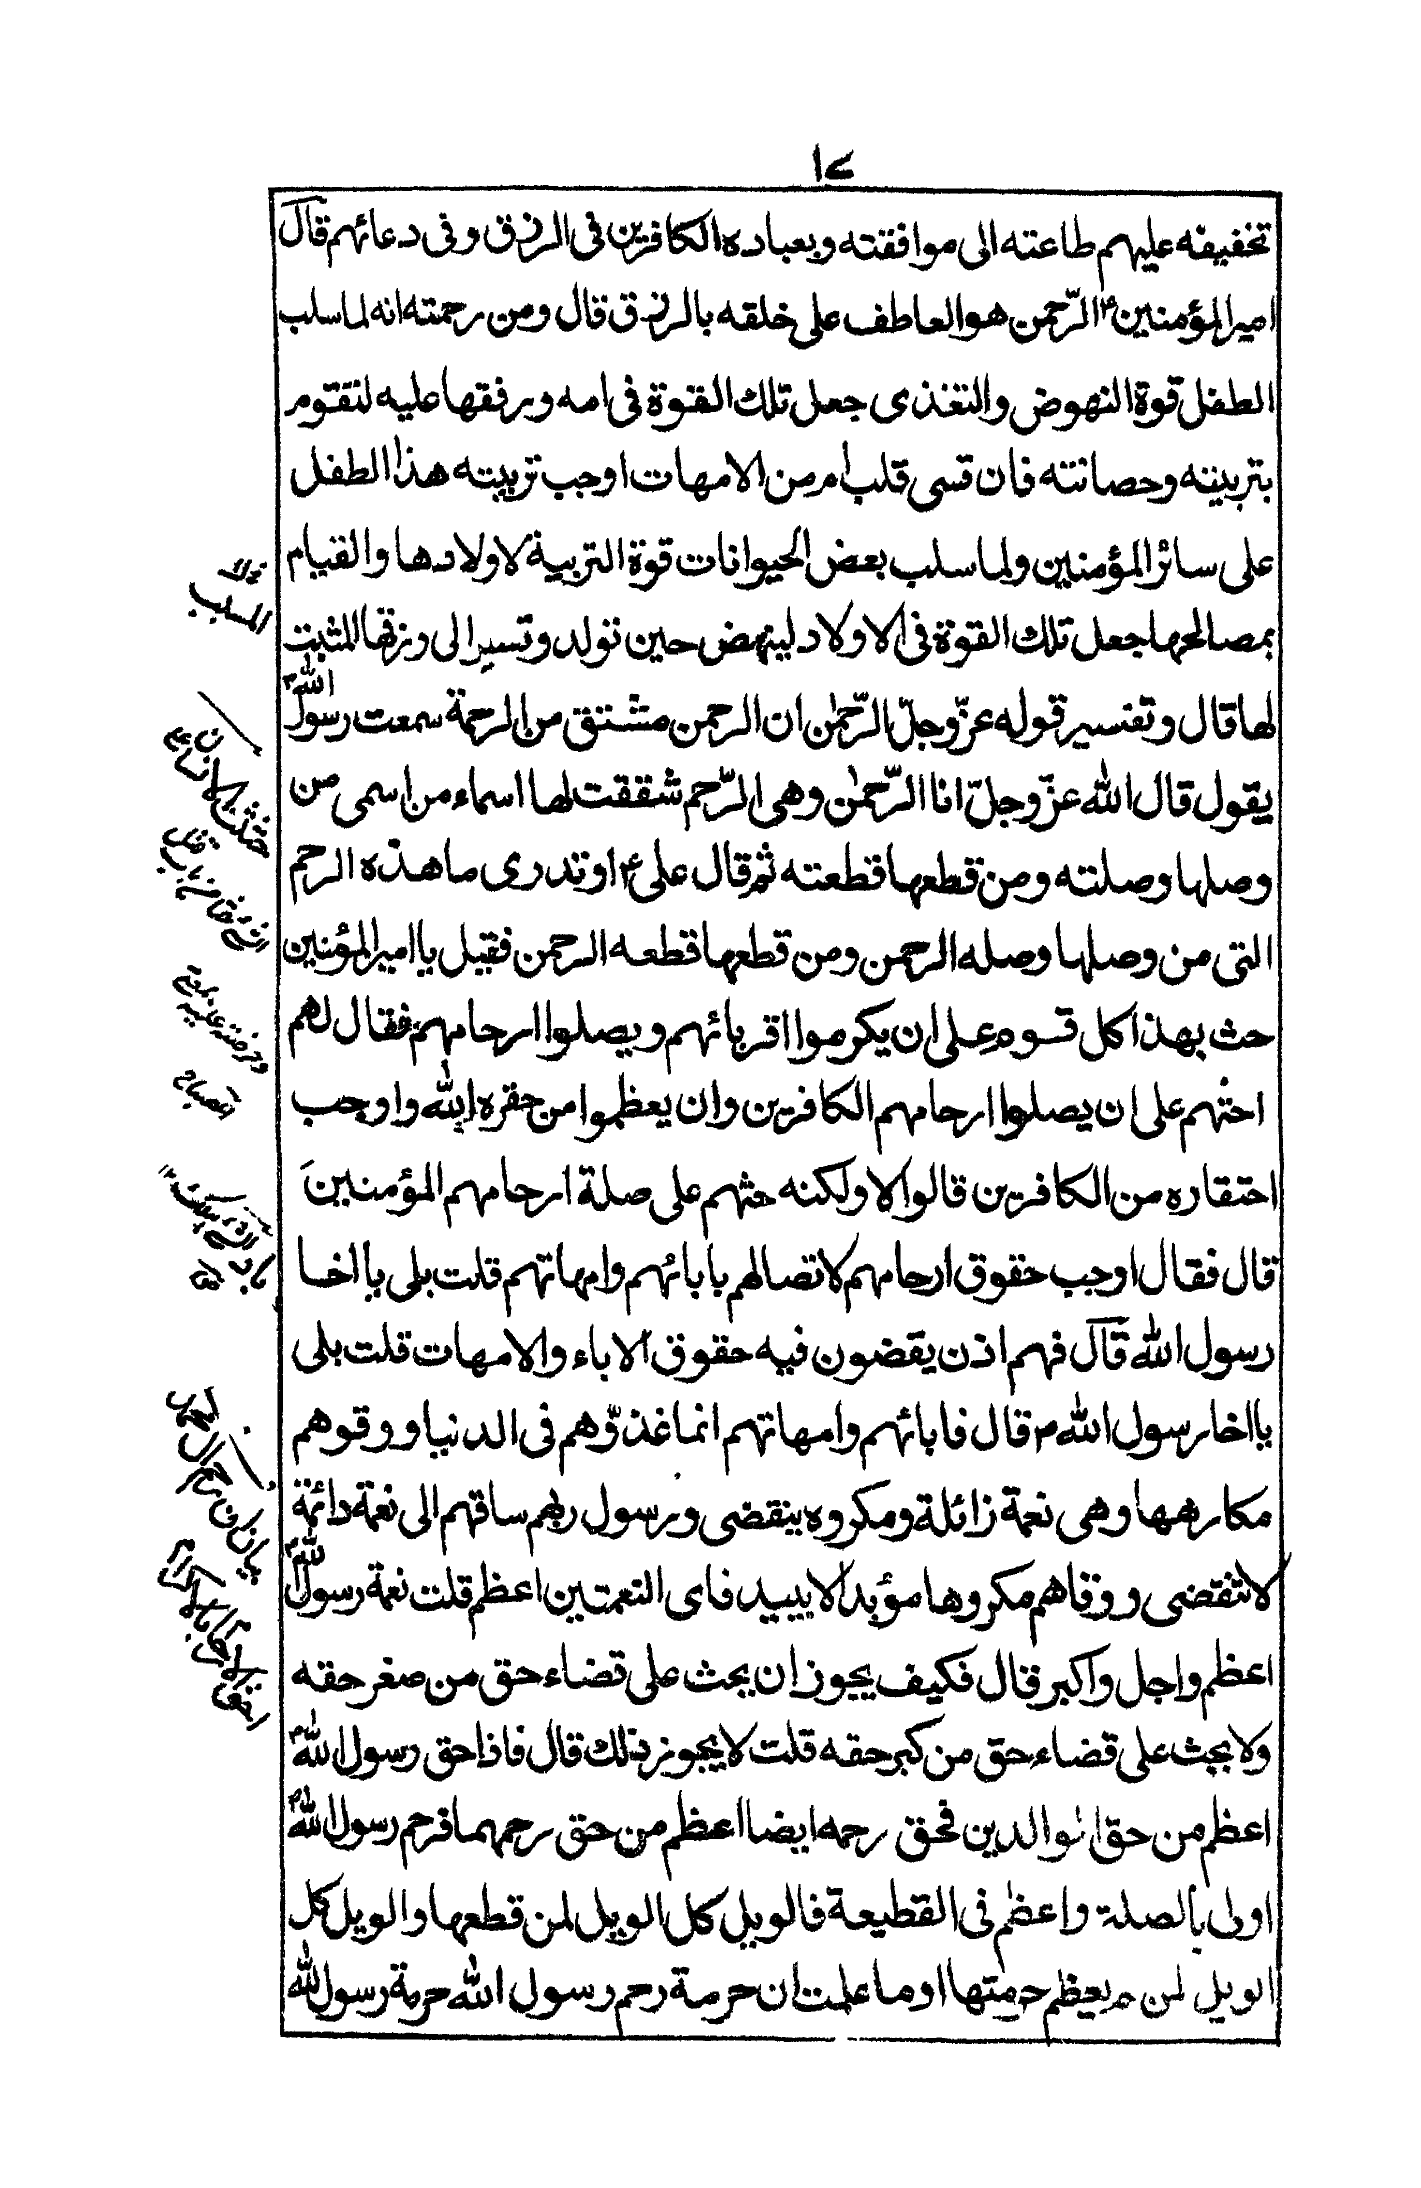 ١٧
تخفيفه عليهم طاعته الى موافقته وبعباده الكافرين فى الرزق وفى دعائهم قال
امير المؤمنين ع الرّحمن هو العاطف على خلقه بالرزق قال ومن رحمته انه لما سلب
الطفل قوة النهوض والتغذى جعل تلك القوة فى امه ورفقها عليه لتقوم
بتربيته وحصانته فان قسى قلب ام من الامهات اوجب تربيته هذا الطفل
على سائر المؤمنين ولما سلب بعض الحيوانات قوة التربية لاولادها والقيام
بمصالحها جعل تلك القوة فى الاولاد لينهض حين تولد وتسير الى رزقها المثبت
لها قال وتفسير قوله عزّ وجلّ الرّحمٰن ان الرحمن مشتق من الرحمة سمعت رسول الله م
يقول قال الله عزّ وجلّ انا الرّحمٰن وهى الرّحم شققت لها اسماء من اسمى من
وصلها وصلته ومن قطعها قطعته ثم قال على ع اوتدرى ما هذه الرحم
التى من وصلها وصله الرحمن ومن قطعها قطعه الرحمن فقيل يا امير المؤمنين
حث بهذا كل قوم على ان يكرموا اقربائهم ويصلوا ارحامهم فقال لهم
احثهم على ان يصلوا ارحامهم الكافرين وان يعظموا من حقره الله واوجب
احتقاره من الكافرين قالوا لا ولكنه حثهم على صلة ارحامهم المؤمنين
قال فقال اوجب حقوق ارحامهم لاتصالهم بابائهم وامهاتهم قلت بلى يا اخا
رسول الله قال فهم اذن يقضون فيه حقوق الاباء والامهات قلت بلى
يا اخا رسول الله م قال فابائهم وامهاتهم انما غذّوهم فى الدنيا ووقوهم
مكارهها وهى نعمة زائلة ومكروه ينقضى ورسول ربهم ساقهم الى نعمة دائمة
لا تنقضى ووقاهم مكروها مؤبدا لا يبيد فاى النعمتين اعظم قلت نعمة رسول الله م
اعظم واجل واكبر قال فكيف يجوز ان يحث على قضاء حق من صغر حقه
ولا يحث على قضاء حق من كبر حقه قلت لا يجوز ذلك قال فاذا حق رسول الله م
اعظم من حق الوالدين فحق رحمه ايضا اعظم من حق رحمهما فرحم رسول الله م
اولى بالصلة واعظم فى القطيعة فالويل كل الويل لمن قطعها والويل كل
الويل لمن لم يعظم حرمتها اوما علمت ان حرمة رحم رسول الله حرمة رسول الله